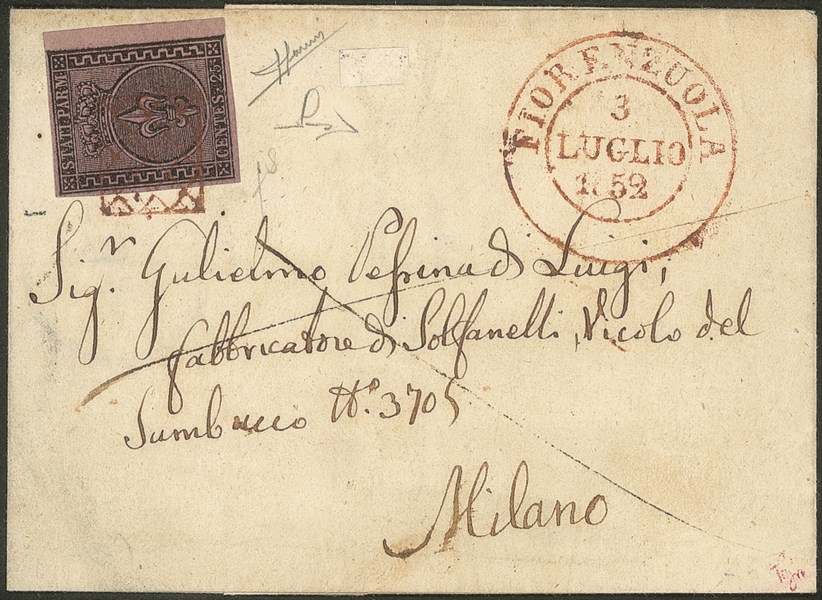 STATI PARM.
CENTES. 25
FIORENZUOLA
3
LUGLIO
1852
Sig.r Gulielmo di Luigi,
Fabbricatore di Solfanelli, Vicolo del
Sambuco N.o 3705
Milano